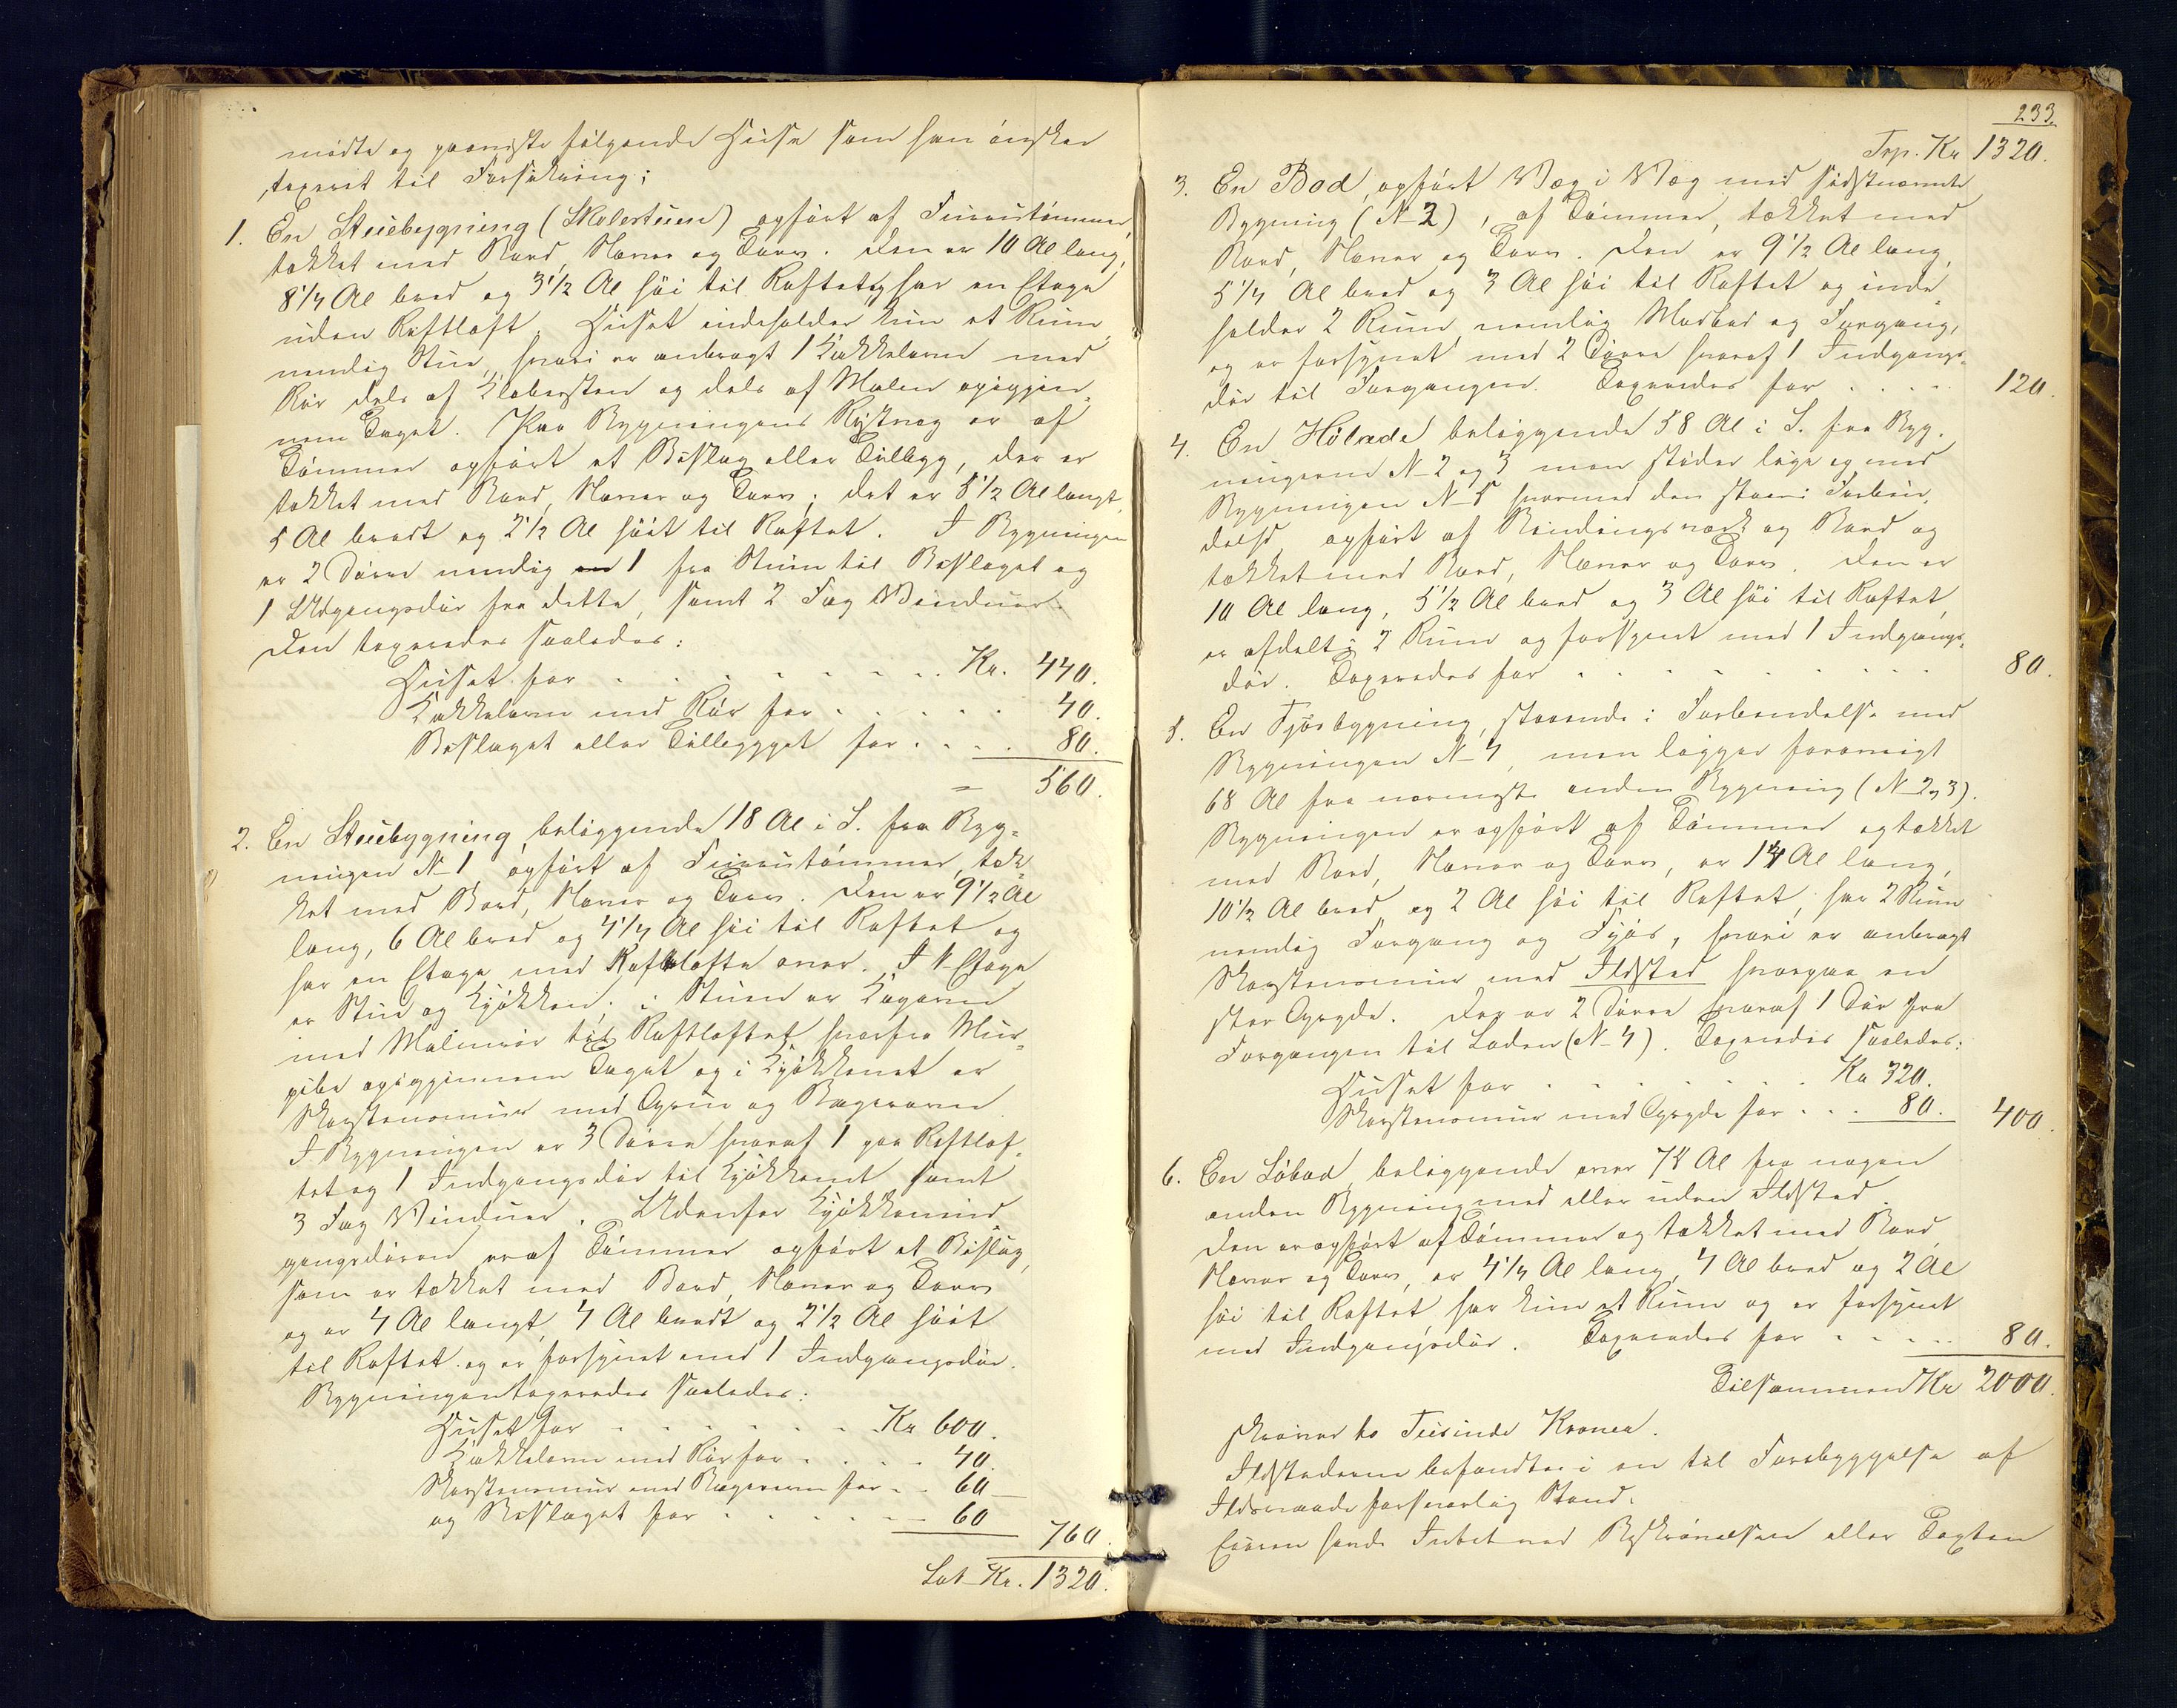 mødte og paaviste følgende Huse som han ønsker
taxeret til Forsikring;
1. En Stuebygning (Skolestuen) opført af Furutømmer,
tækket med Bord, Næver og Torv. Den er 10 Al lang,
8 1/4 Al bred og 3 1/2 Al høi til Raftet, har en Etage
uden Røstloft. Huset indeholder kun et Rum,
nemlig Stue, hvori er anbragt 1 Kakkelovn med
Rør dels af Klebersten og dels af Malm opigjen-
nem Taget. Paa Bygningens Røstvæg er af
Tømmer opført et Bislag eller Tilbygg, der er
tækket med Bord, Næver og Torv; det er 5 1/2 Al langt,
5 Al bredt og 2 1/2 Al høit til Raftet. I Bygningen
er 2 Døre nemlig 1 fra Stuen til Bislaget og
1 Udgangsdør fra dette, samt 2 Fag Vinduer.
Den taxeredes saaledes:
Huset for . . . . . . . . Kr. 440.
Kakkelovn med Rør for . . . . . 40.
Bislaget eller Tilbygget for . . . . 80.
= 560.
2. En Stuebygning, beliggende 18 Al i S. fra Byg-
ningen N-1 opført af Furutømmer, tæk-
ket med Bord, Næver og Torv. Den er 9 1/2 Al
lang, 6 Al bred og 4 1/4 Al høi til Raftet og
har en Etage med Røstlofte over. I 1 Etage
er Stue og Kjøkken; i Stuen er Kagovn
med Malmrør til Røstloftet hvorfra Mur-
pibe opigjennem Taget og i Kjøkkenet er
Skorstensmur med Gruve og Bagerovn.
I Bygningen er 3 Døre hvoraf 1 paa Røstlof-
tet og 1 Indgangsdør til Kjøkkenet samt
3 Fag Vinduer. Udenfor Kjøkkenind-
gangsdøren er af Tømmer opført et Bislag,
som er tækket med Bord, Næver og Torv
og er 4 Al langt, 4 Al bredt og 2 1/2 Al høit
til Raftet og er forsynet med 1 Indgangsdør.
Bygningen taxeredes saaledes:
Huset for . . . . . . . Kr 600.
Kakkelovn med Rør for . . . . 40.
Skorstensmur med Bagerovn for . . 60
og Bislaget for . . . . . . 60
760.
Lat. Kr. 1320.
233.
Trp. Kr 1320.
3. En Bod, opført Væg i Væg med sidstnævnte
Bygning (N-2), af Tømmer, tækket med
Bord, Næver og Torv. Den er 9 1/2 Al lang,
5 1/4 Al bred og 3 Al høi til Raftet og inde-
holder 2 Rum, nemlig Madbod og Forgang,
og er forsynet med 2 Døre hvoraf 1 Indgangs-
dør til Forgangen. Taxeredes for . . . . 120.
4. En Hølade beliggende 58 Al i S. fra Byg-
ningerne N-2 og 3 men støder lige og med
Bygningen N-5 hvormed den staar i Forbin-
delse opført af Bindingsværk og Bord og
tækket med Bord, Næver og Torv. Den er
10 Al lang, 5 1/2 Al bred og 3 Al høi til Raftet,
er afdelt i 2 Rum og forsynet med 1 Indgangs-
dør. Taxeredes for . . . . . . . . 80.
5. En Fjøsbygning, staaende i Forbindelse med
Bygningen N-4, men ligger forøvrigt
68 Al fra nærmeste anden Bygning (N-2, 3).
Bygningen er opført af Tømmer og tækket
med Bord, Næver og Torv, er 14 Al lang,
10 1/2 Al bred og 2 Al høi til Raftet, har 2 Rum
nemlig Forgang og Fjøs, hvori er anbragt
Skorstensmur med Ildsted hvorpaa en
stor Gryde. Der er 2 Døre hvoraf 1 Dør fra
Forgangen til Laden (N-4). Taxeredes saaledes:
Huset for . . . . . . . Kr 320.
Skorstensmur med Gryde for . . . 80. 400.
6. En Løbod, beliggende over 74 Al fra nogen
anden Bygning med eller uden Ildsted.
Den er opført af Tømmer og tækket med Bord,
Næver og Torv, er 4 1/4 Al lang, 4 Al bred og 2 Al
høi til Raftet, har kun et Rum og er forsynet
med Indgangsdør. Taxeredes for . . . . . 80.
Tilsammen Kr 2000.
skriver to Tusinde Kroner.
Ildstederne befandtes i en til Forebyggelse af
Ildsvaade forsvarlig Stand.
Eieren havde Intet ved Beskrivelsen eller Taxten